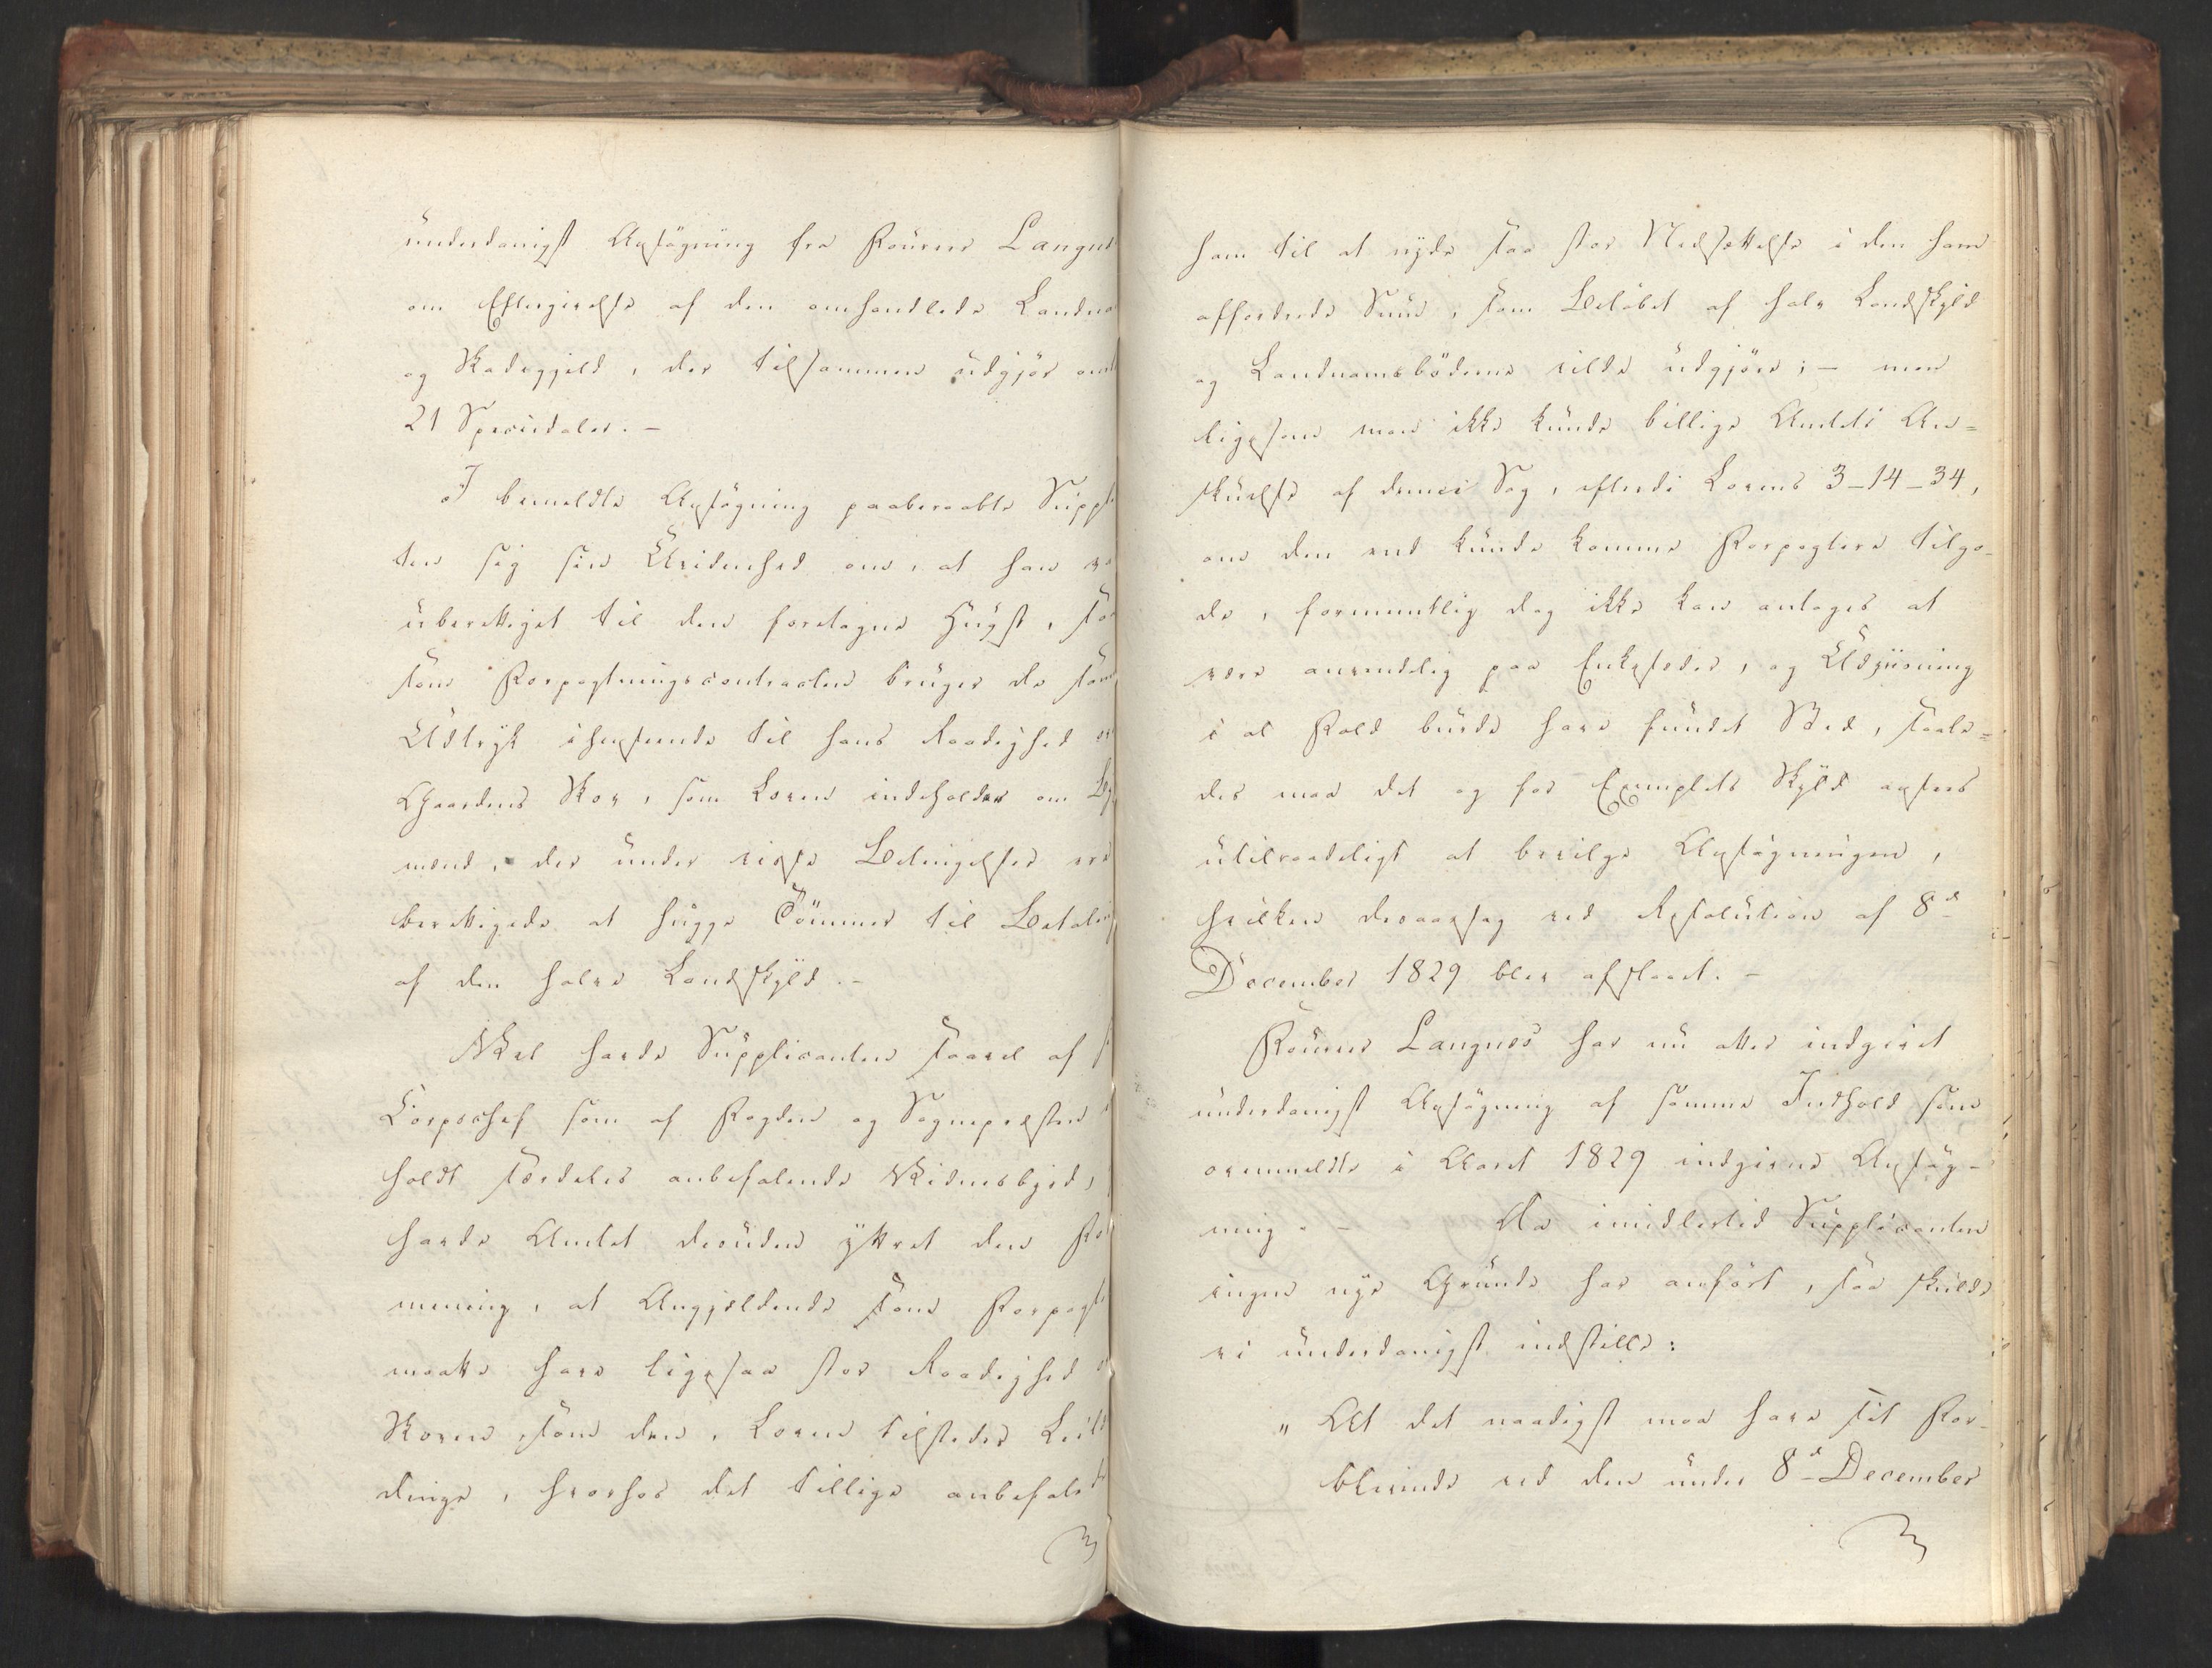 underdanigst Ansøgning fra Fourer Langnes
om Eftergivelse af den omhandlede Landna
og Skadegjeld, der tilsammen udgjør omt
21 Speciedaler. –
I bemeldte Ansøgning paaberaabte Suppli
ten sig sin Uvidenhed om, at han va
uberettiget til den foretagne Hugst, saa
som Forpagtningscontracten bruger de sam
Udtryk ihenseende til hans Raadighed ov
Gaardens Skov, som Loven indeholder om Byg
mænd, der under visse Betingelser ere
berettigede at hugge Tømmer til Betaling
af den halve Landskyld. –
Vel havde Supplicanten saavel af s
Corpschef som af Fogden og Sognepresten
holdt særdeles anbefalende Vidnesbyrd,
havde Amtet desuden yttret den For
mening, at Angjeldende som Forpagte
maatte have ligesaa stor Raadighed o
Skoven, som den, Loven tilsteder Leil
dinge, hvorhos det tillige anbefaled
ham til at nyde saa stor Nedsættelse i den ham
affordrede Sum, som Beløbet af halv Landskyld
og Landnamsbøderne vilde udgjøre; – men
ligesom man ikke kunde billige Amtets An=
skuelse af denne Sag, efterdi Lovens 3–14–34,
om den end kunde komme Forpagtere tilgo-
de, formeentlig dog ikke kan antages at
være anvendelig paa Enkesæder, og Udviisning
i al Fald burde have fundet Sted, saale=
des maa det og for Exemplets Skyld ansees
utilraadeligt at bevilge Ansøgningen,
hvilken desaarsag ved Resolution af 8d
December 1829 blev afslaaet. –
Fourer Langnes har nu atter indgivet
underdanigst Ansøgning af samme Indhold som
ovenmeldte i Aaret 1829 indgivne Ansøg-
ning. – Da imidlertid Supplicanten
ingen nye Grunde har anført, saa skulde
vi underdanigst indstille:
„ At det naadigst maa have sit For-
blivende ved den under 8d December